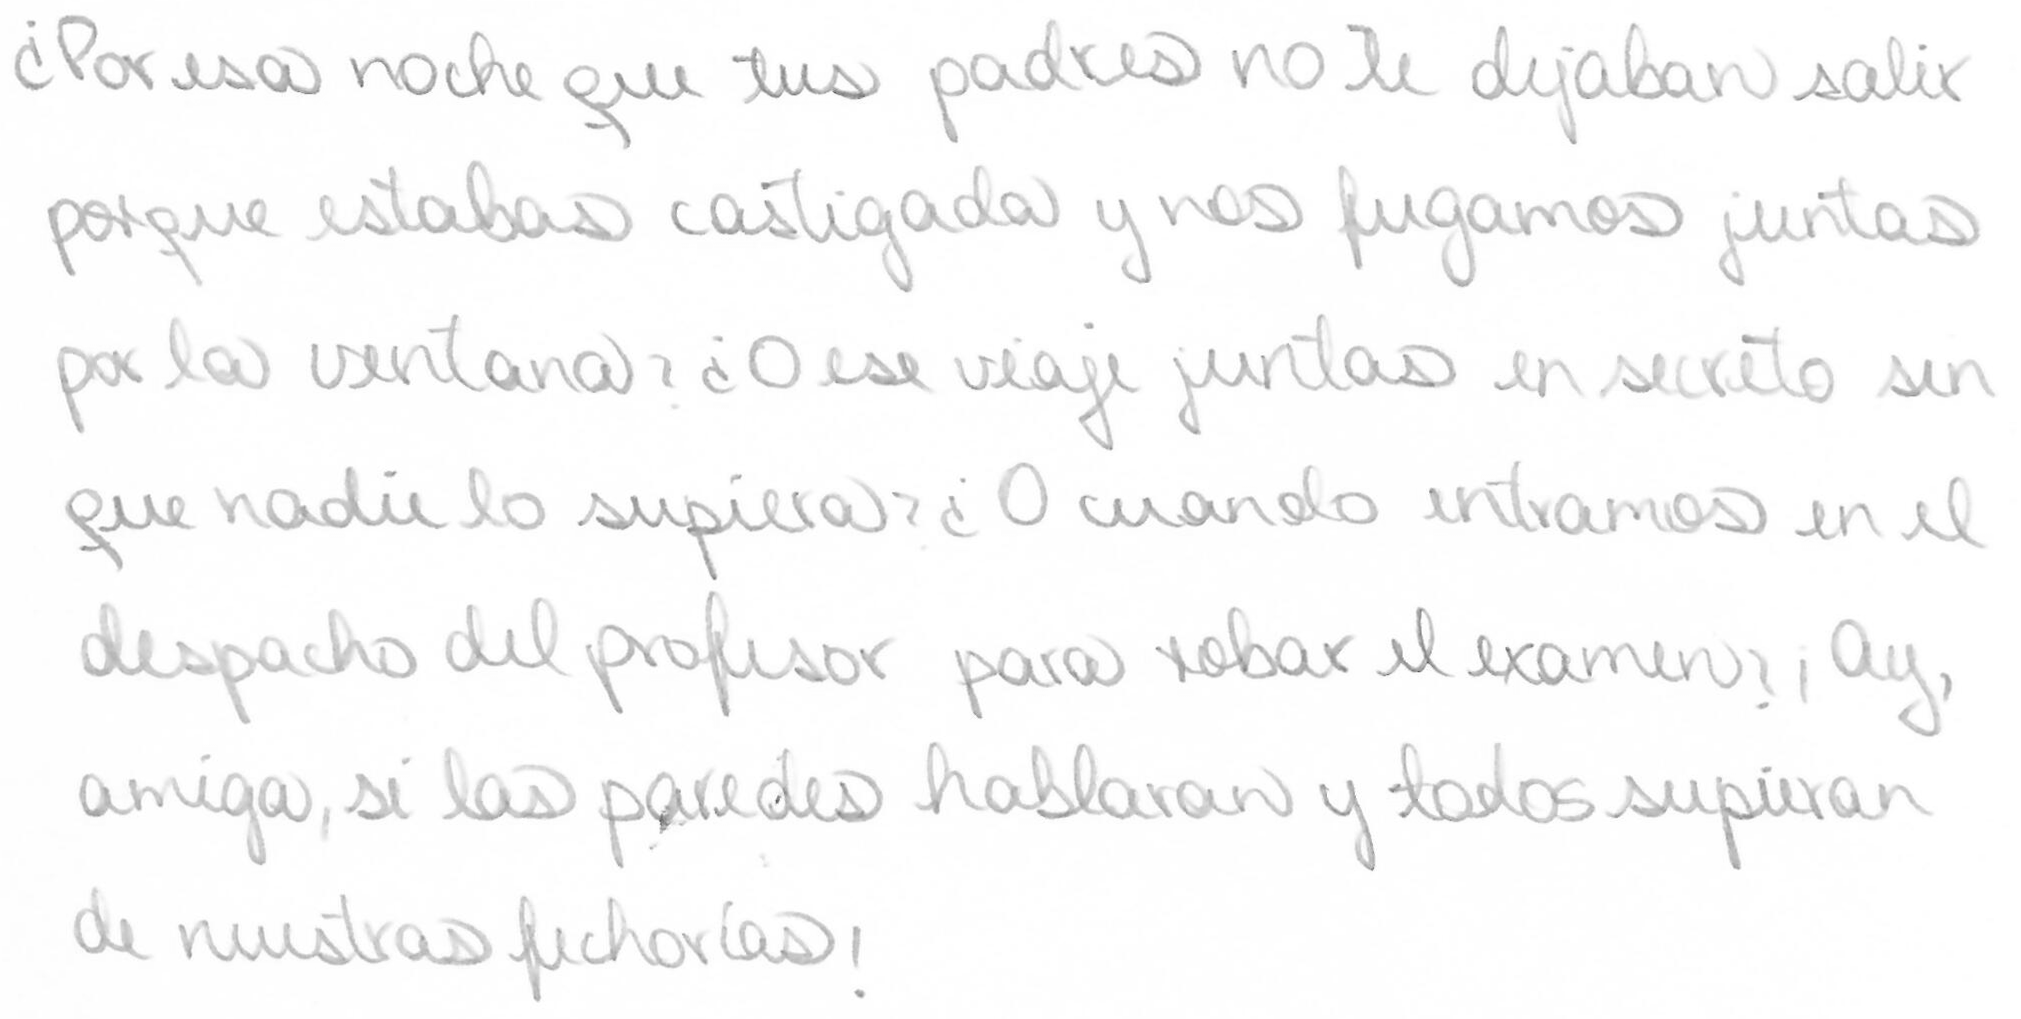 ¿Por esa noche que tus padres no te dejaban salir
porque estabas castigada y nos fugamos juntas
por la ventana? ¿O ese viaje juntas en secreto sin
que nadie lo supiera? ¿O cuando entramos en el
despacho del profesor para robar el examen? ¡Ay,
amiga, si las paredes hablaran y todos supieran
de nuestras fechorías!